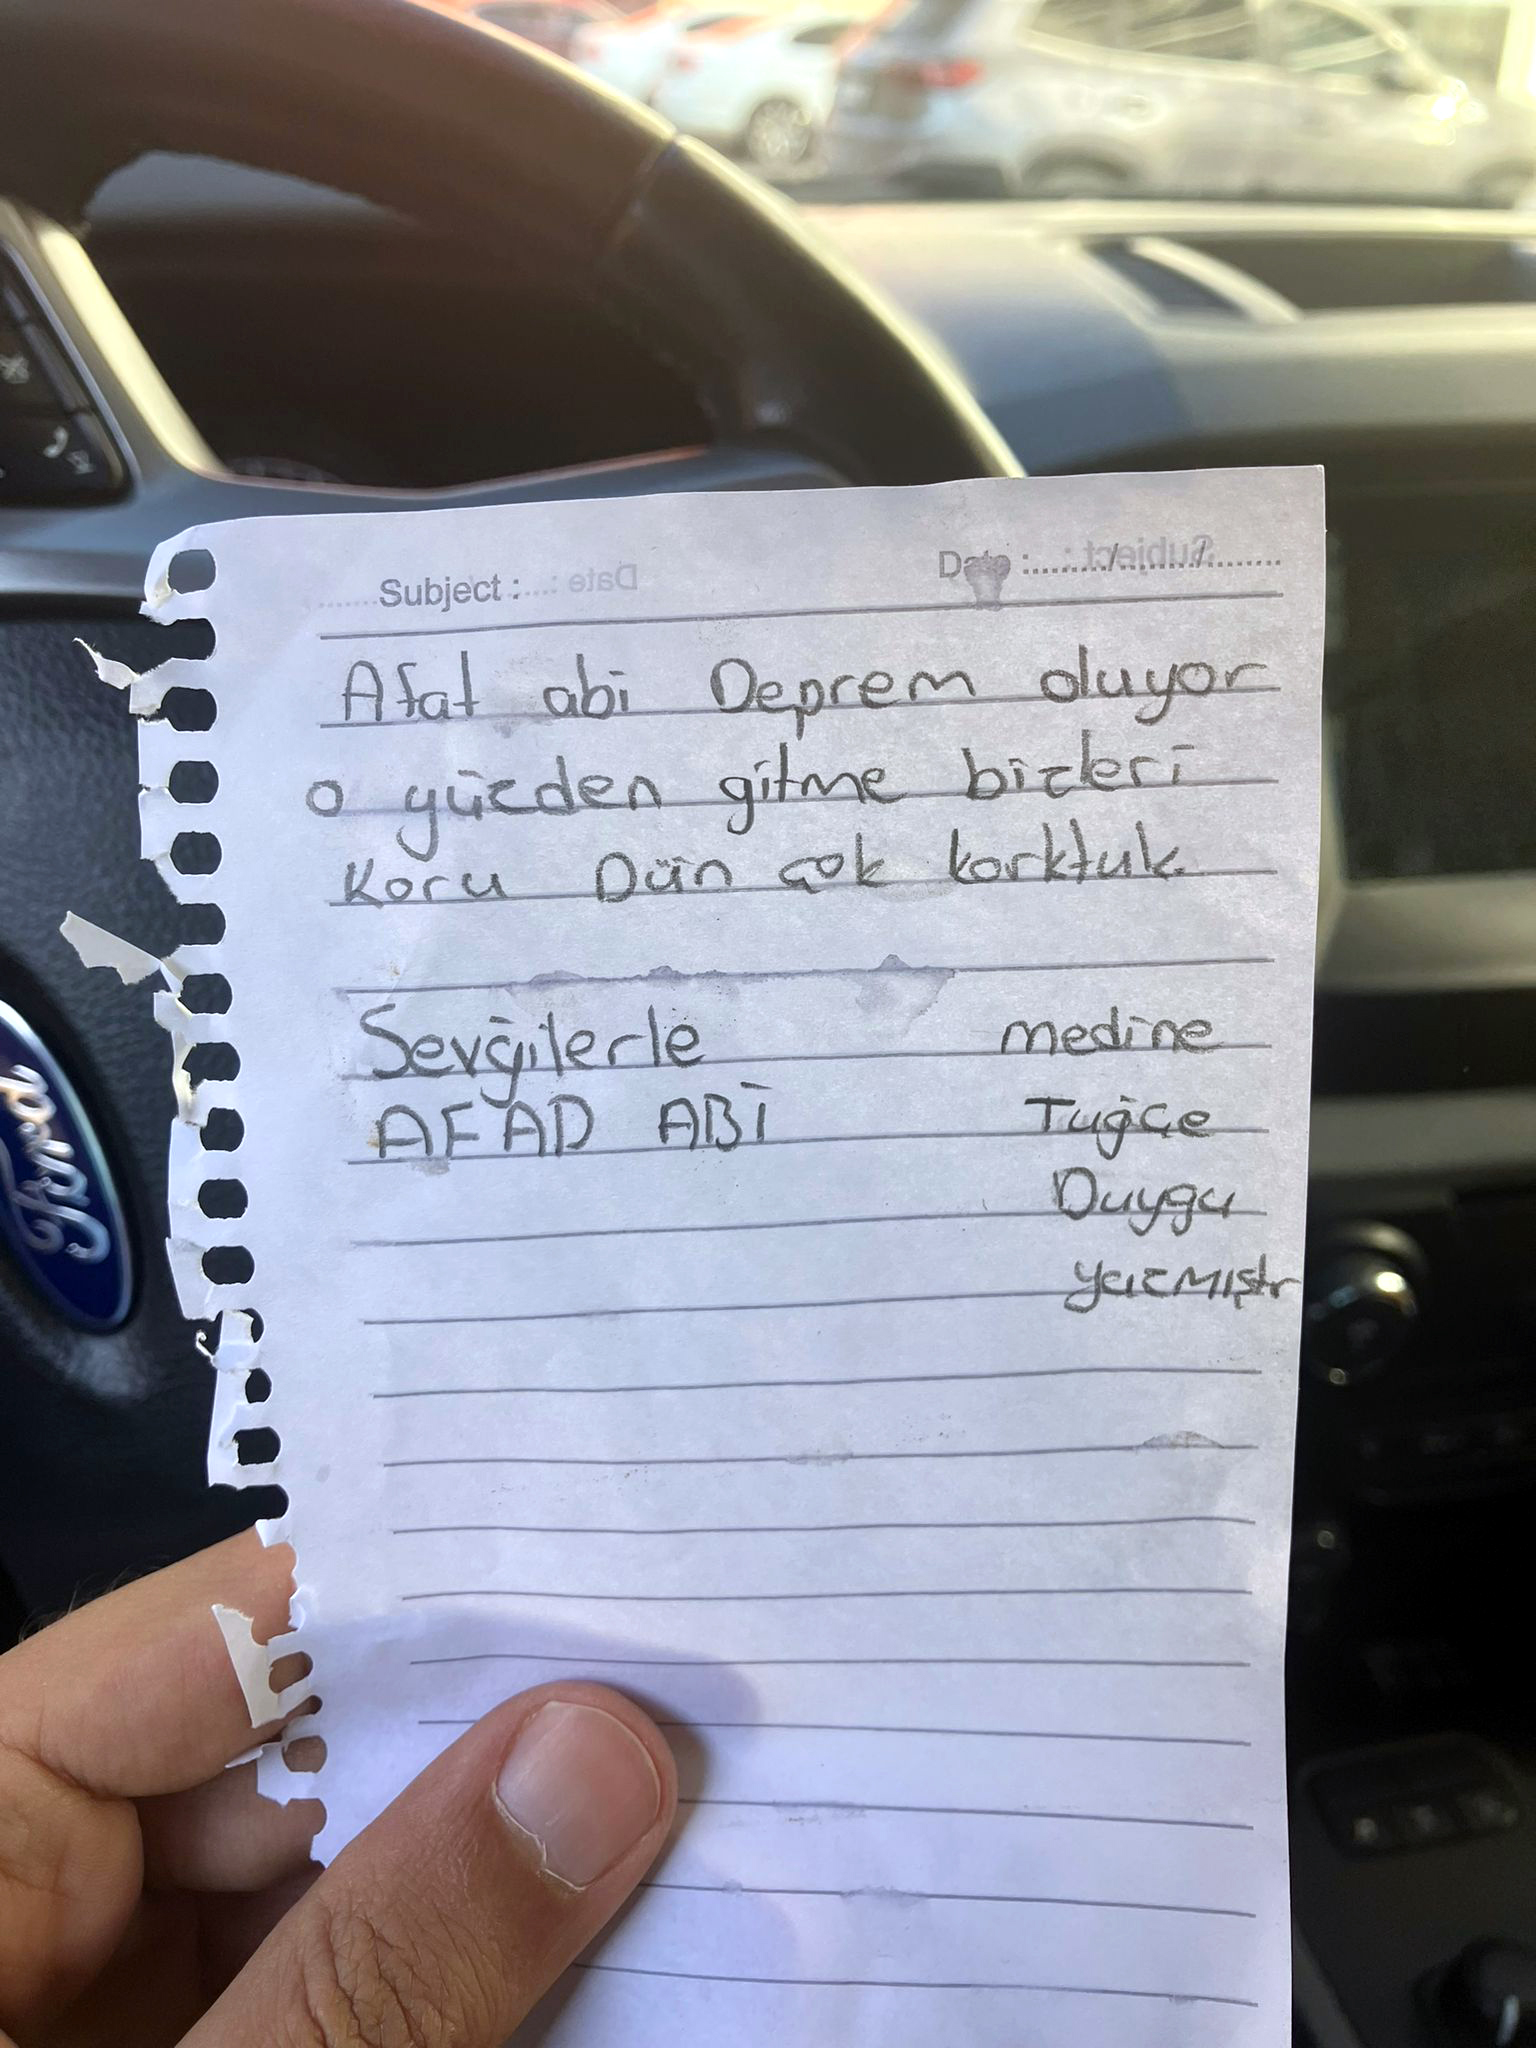 Subject : Date :......../......../........
Afat abi Deprem oluyor
o yüzden gitme bizleri
Koru Dün çok korktuk
Sevğilerle medine
AFAD ABİ Tuğçe
Duygu
yazmıştr
Ford